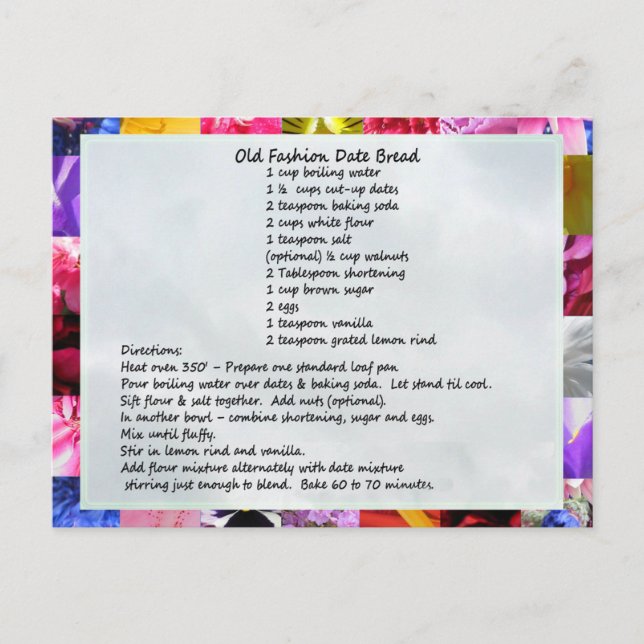 Old Fashion Date Bread
1 cup boiling water
1 ½ cups cut-up dates
2 teaspoon baking soda
2 cups white flour
1 teaspoon salt
(optional) ½ cup walnuts
2 Tablespoon shortening
1 cup brown sugar
2 eggs
1 teaspoon vanilla
2 teaspoon grated lemon rind
Directions:
Heat oven 350' – Prepare one standard loaf pan
Pour boiling water over dates & baking soda. Let stand til cool.
Sift flour & salt together. Add nuts (optional).
In another bowl – combine shortening, sugar and eggs.
Mix until fluffy.
Stir in lemon rind and vanilla.
Add flour mixture alternately with date mixture
stirring just enough to blend. Bake 60 to 70 minutes.